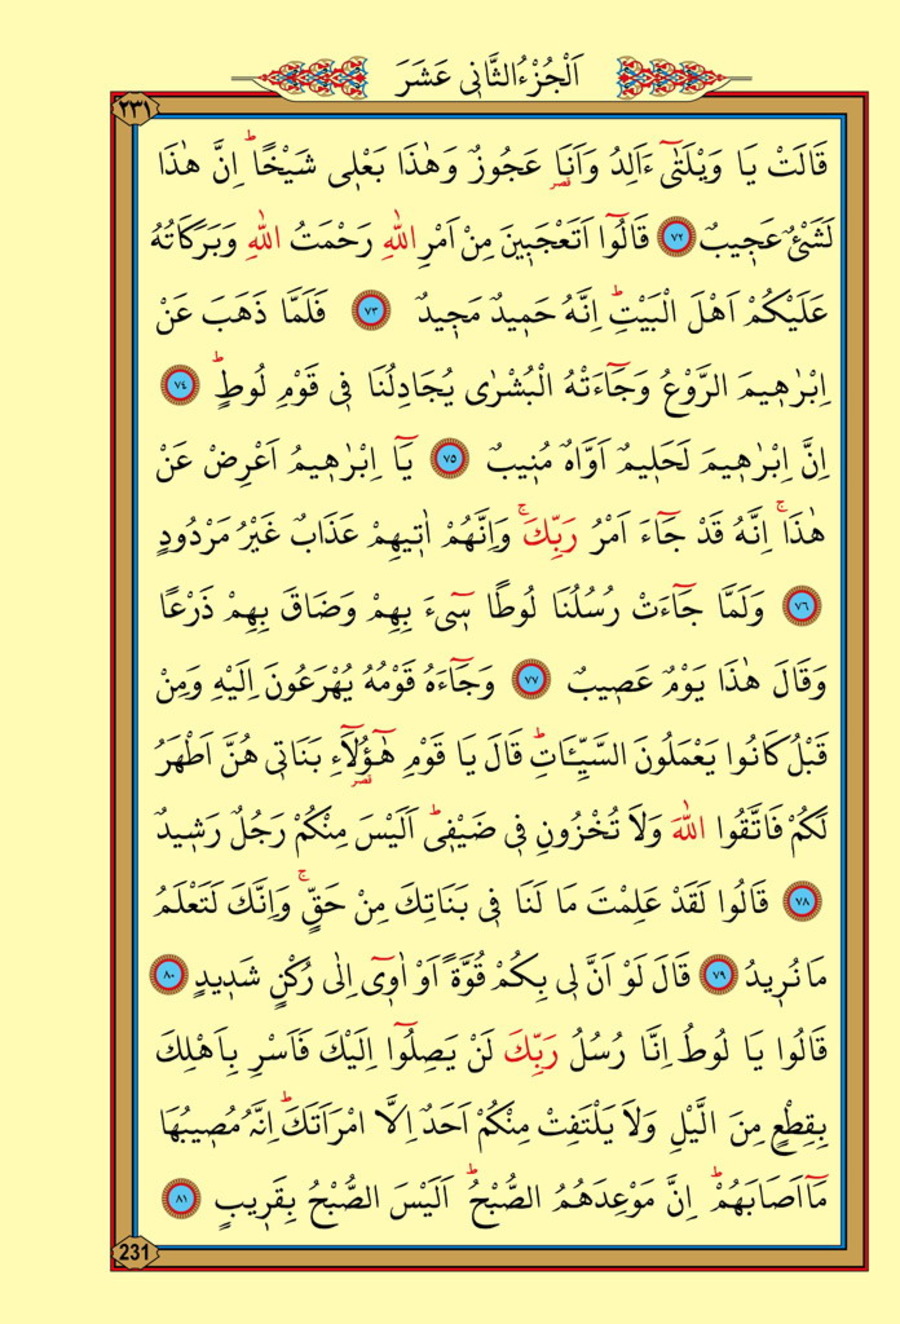 اَلْجُزْءُ الثَّانٖي عَشَرَ
٢٣١
قَالَتْ يَا وَيْلَتٰٓى ءَاَلِدُ وَاَنَا۬ عَجُوزٌ وَهٰذَا بَعْلٖي شَيْخًاۜ اِنَّ هٰذَا
قصر
لَشَيْءٌ عَجٖيبٌ ﴿٧٢﴾ قَالُٓوا اَتَعْجَبٖينَ مِنْ اَمْرِ اللّٰهِ رَحْمَتُ اللّٰهِ وَبَرَكَاتُهُ
عَلَيْكُمْ اَهْلَ الْبَيْتِۜ اِنَّهُ حَمٖيدٌ مَجٖيدٌ ﴿٧٣﴾ فَلَمَّا ذَهَبَ عَنْ
اِبْرٰهٖيمَ الرَّوْعُ وَجَٓاءَتْهُ الْبُشْرٰى يُجَادِلُنَا فٖي قَوْمِ لُوطٍۜ ﴿٧٤﴾
اِنَّ اِبْرٰهٖيمَ لَحَلٖيمٌ اَوَّاهٌ مُنٖيبٌ ﴿٧٥﴾ يَٓا اِبْرٰهٖيمُ اَعْرِضْ عَنْ
هٰذَاۚ اِنَّهُ قَدْ جَٓاءَ اَمْرُ رَبِّكَۚ وَاِنَّهُمْ اٰتٖيهِمْ عَذَابٌ غَيْرُ مَرْدُودٍ
﴿٧٦﴾ وَلَمَّا جَٓاءَتْ رُسُلُنَا لُوطًا سٖٓيءَ بِهِمْ وَضَاقَ بِهِمْ ذَرْعًا
وَقَالَ هٰذَا يَوْمٌ عَصٖيبٌ ﴿٧٧﴾ وَجَٓاءَهُ قَوْمُهُ يُهْرَعُونَ اِلَيْهِ وَمِنْ
قَبْلُ كَانُوا يَعْمَلُونَ السَّيِّـَٔاتِۜ قَالَ يَا قَوْمِ هٰٓؤُ۬لَٓاءِ بَنَاتٖي هُنَّ اَطْهَرُ
قصر
لَكُمْ فَاتَّقُوا اللّٰهَ وَلَا تُخْزُونِ فٖي ضَيْفٖيۜ اَلَيْسَ مِنْكُمْ رَجُلٌ رَشٖيدٌ
﴿٧٨﴾ قَالُوا لَقَدْ عَلِمْتَ مَا لَنَا فٖي بَنَاتِكَ مِنْ حَقٍّۚ وَاِنَّكَ لَتَعْلَمُ
مَا نُرٖيدُ ﴿٧٩﴾ قَالَ لَوْ اَنَّ لٖي بِكُمْ قُوَّةً اَوْ اٰوٖٓي اِلٰى رُكْنٍ شَدٖيدٍ ﴿٨٠﴾
قَالُوا يَا لُوطُ اِنَّا رُسُلُ رَبِّكَ لَنْ يَصِلُٓوا اِلَيْكَ فَاَسْرِ بِاَهْلِكَ
بِقِطْعٍ مِنَ الَّيْلِ وَلَا يَلْتَفِتْ مِنْكُمْ اَحَدٌ اِلَّا امْرَاَتَكَۜ اِنَّهُ مُصٖيبُهَا
مَٓا اَصَابَهُمْۜ اِنَّ مَوْعِدَهُمُ الصُّبْحُۜ اَلَيْسَ الصُّبْحُ بِقَرٖيبٍ ﴿٨١﴾
231